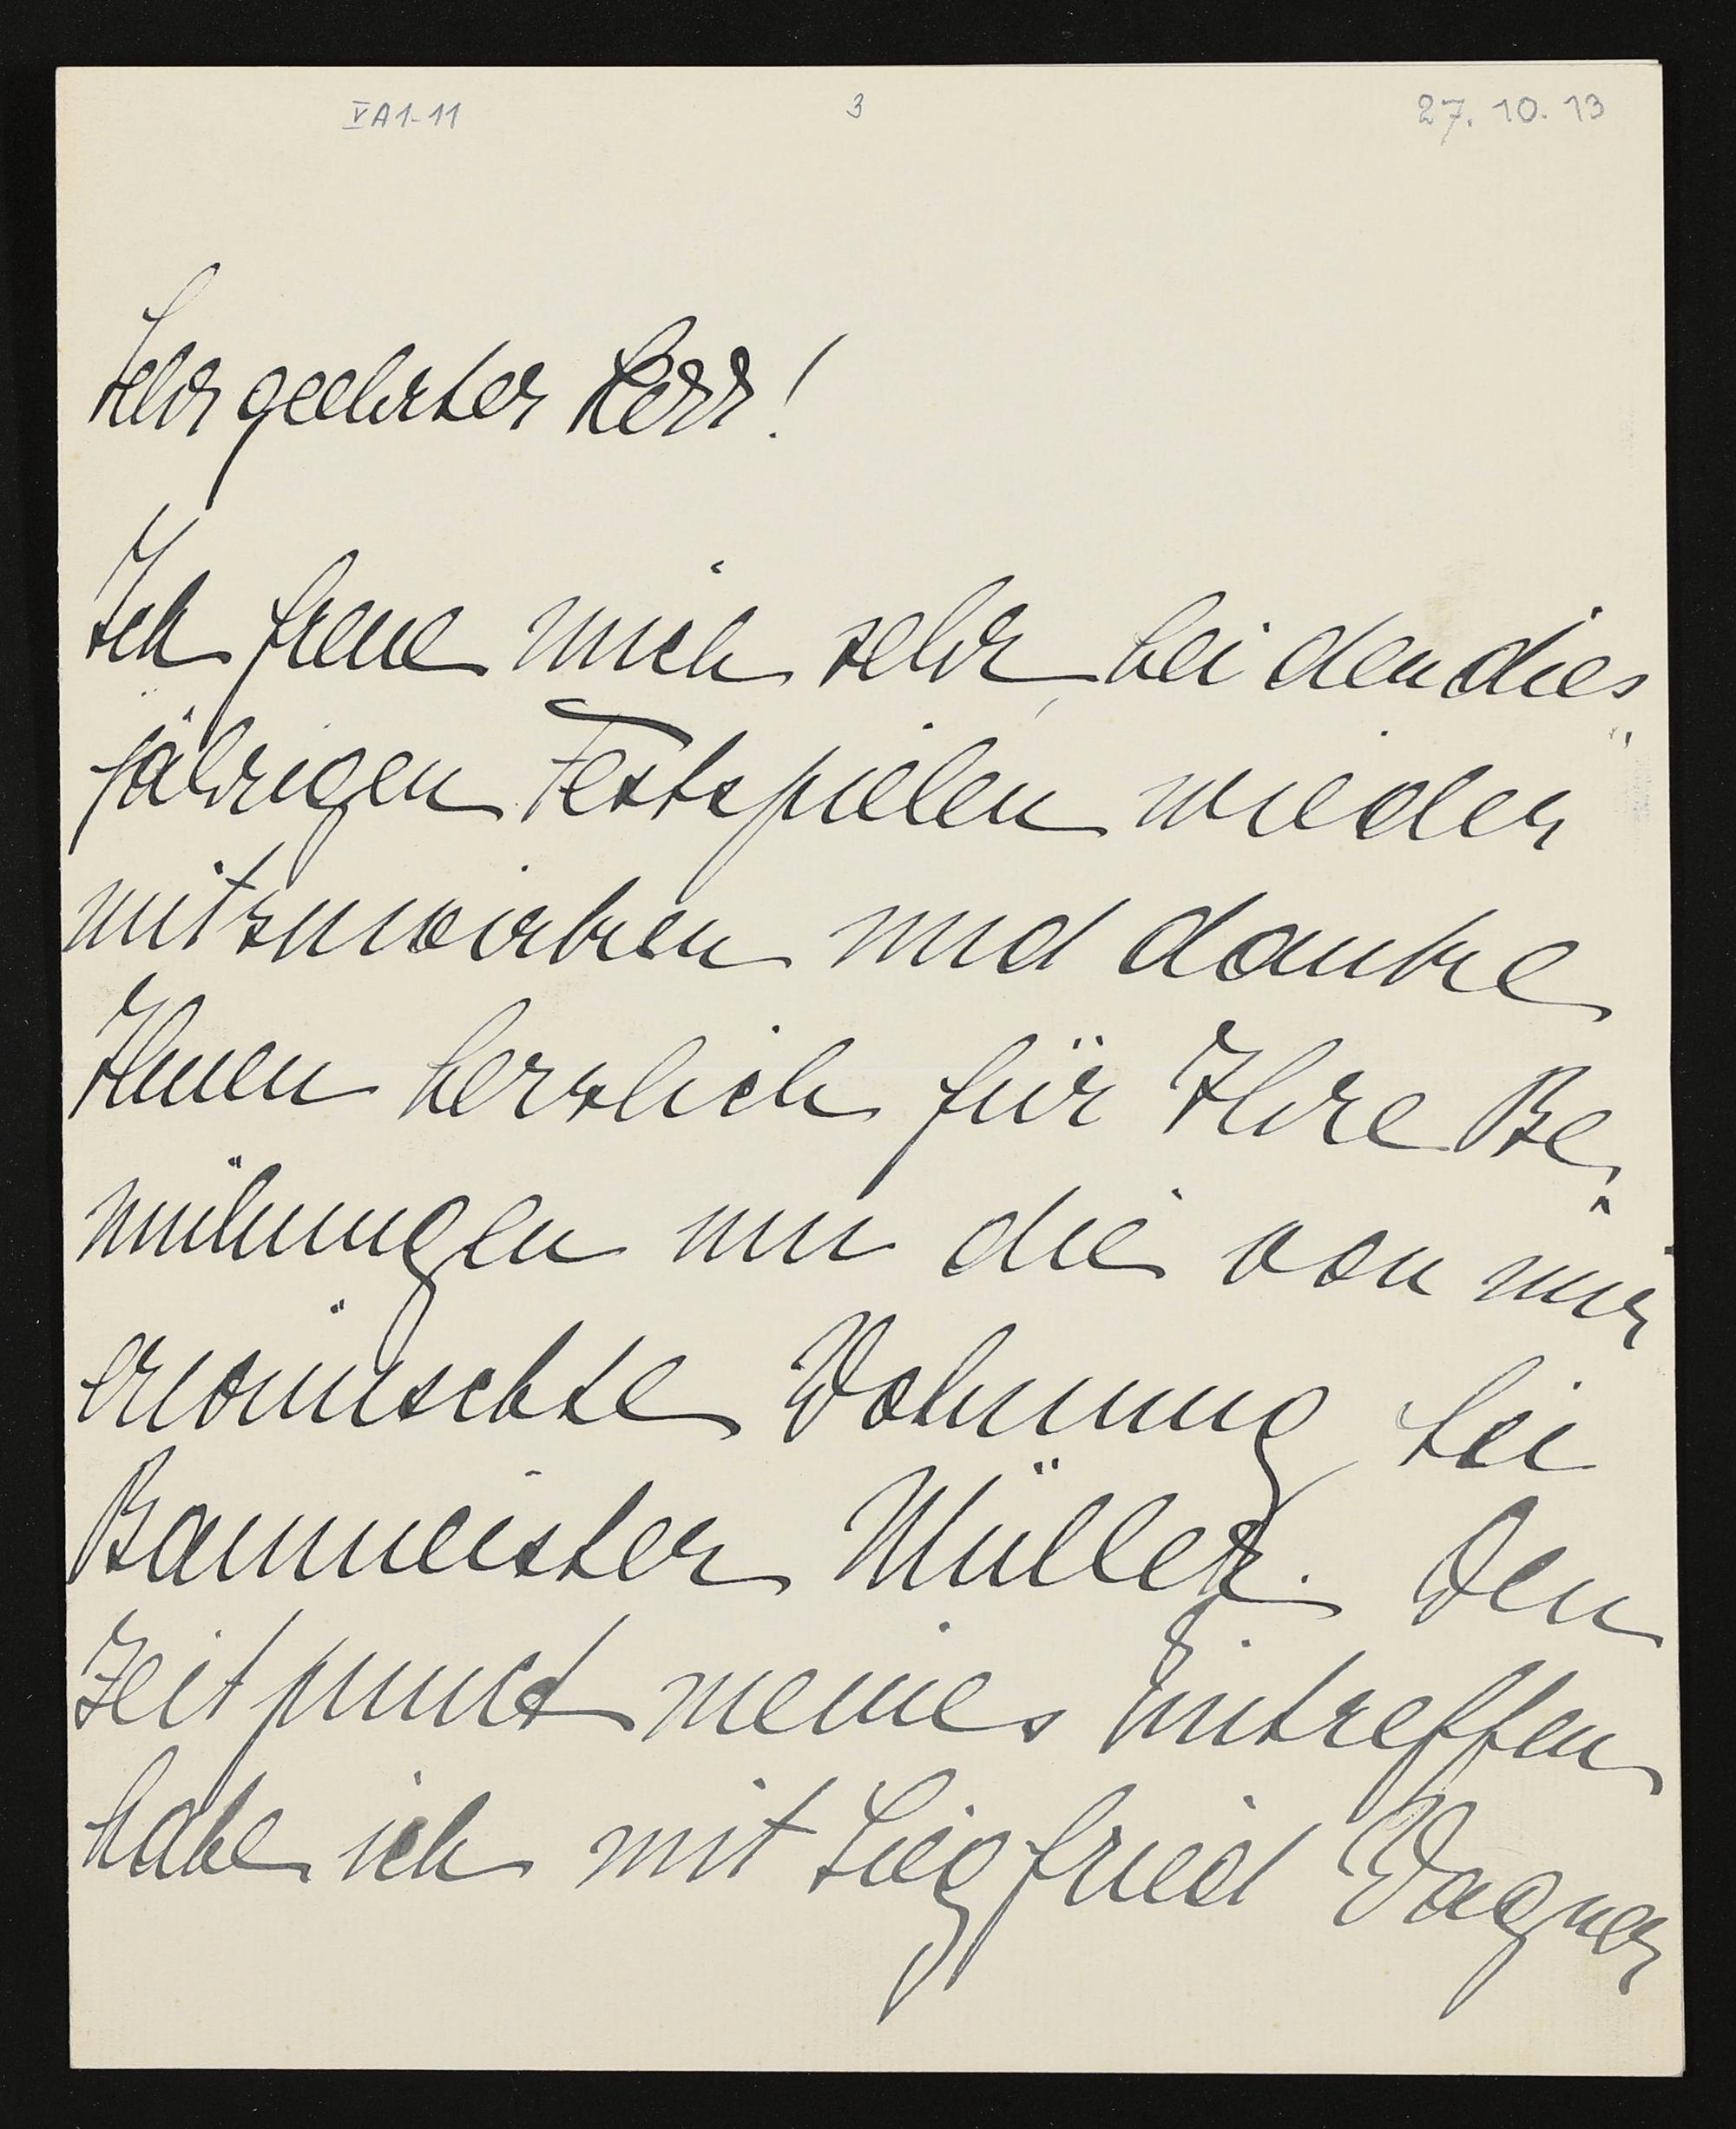 V A 1-11 3 27.10.13
Sehr geehrter Herr!
Ich freue mich sehr, bei den dies
jährigen Festspielen wieder
mitzuwirken und danke
Ihnen herzlich für Ihre Be„
mühungen um die von mir
erwünschte Wohnung bei
Baumeister Müller. Den
Zeitpunct meines Eintreffen
habe ich mit Siegfried Wagner